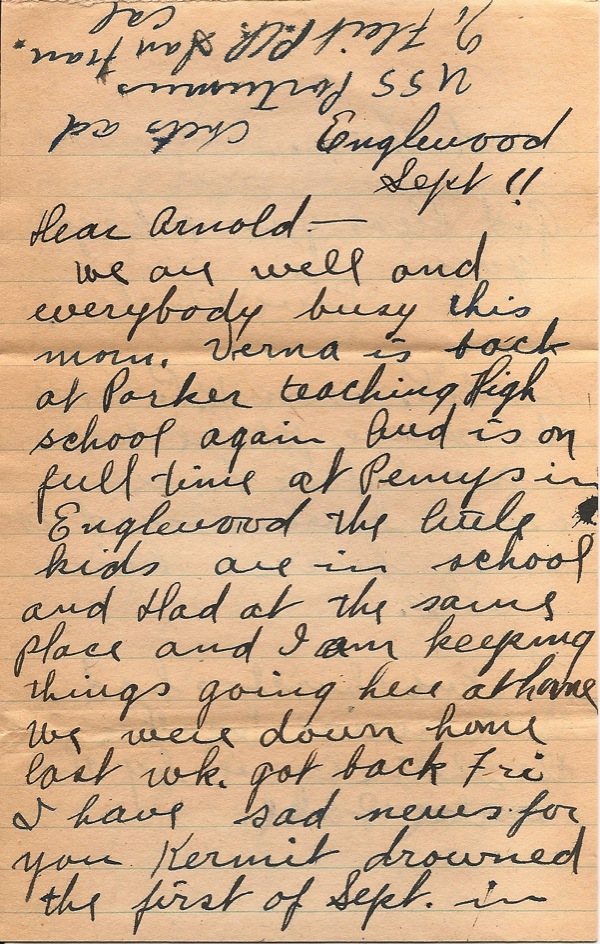 Chets ad
USS Portunus
Fleet P.O. San Fran.
Cal
Englewood
Sept 11
Dear Arnold —
We are well and
everybody busy this
morn. Verna is back
at Parker teaching High
school again Bud is on
full time at Pennys in
Englewood the little
kids are in school
and Dad at the same
place and I am keeping
things going here at home
We were down home
last wk. got back Fri
I have sad news for
you Kermit drowned
the first of Sept. in